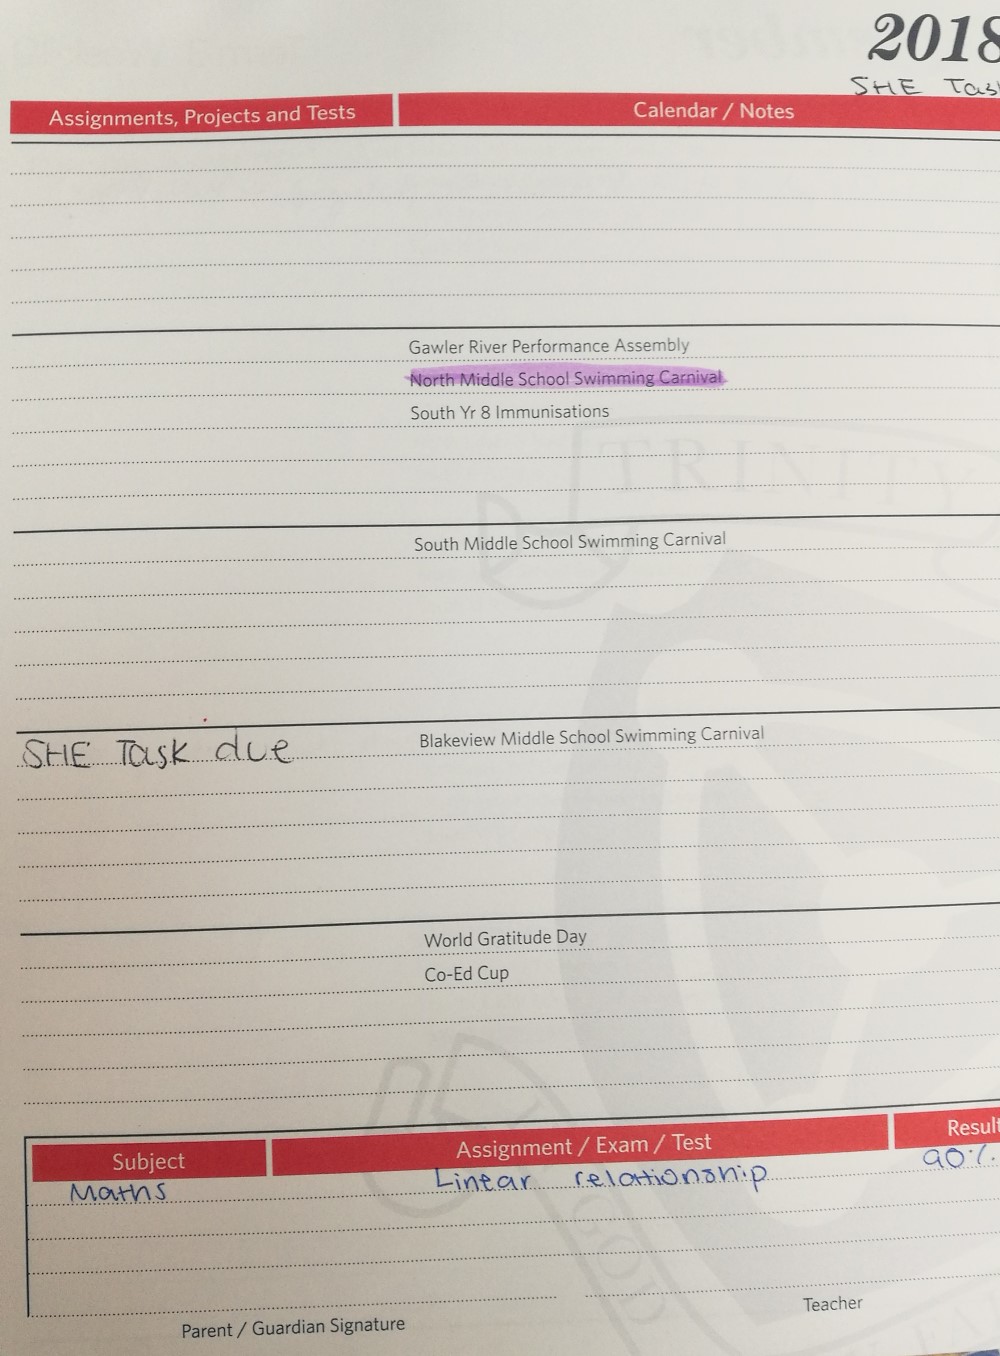 2018
SHE Task
Assignments, Projects and Tests
Calendar / Notes
Gawler River Performance Assembly
North Middle School Swimming Carnival
South Yr 8 Immunisations
TRINITY
South Middle School Swimming Carnival
SHE Task due
Blakeview Middle School Swimming Carnival
World Gratitude Day
Co-Ed Cup
Subject
Assignment / Exam / Test
Result
Maths
Linear relationship
90%
GOD
Parent / Guardian Signature
Teacher